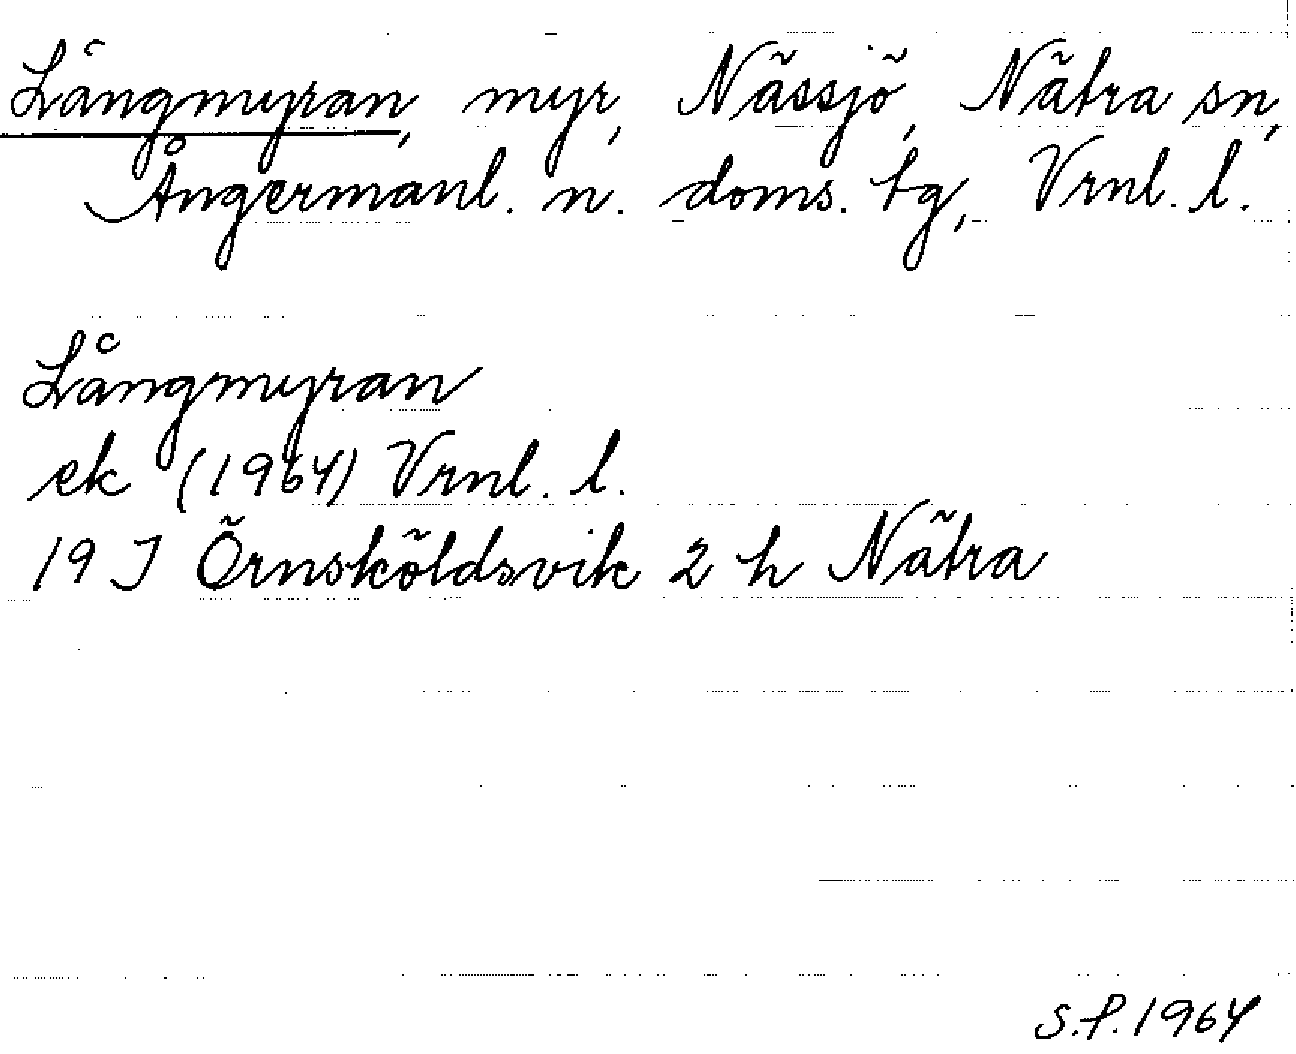 Långmyran, myr, Nässjö, Nätra sn,
Ångermanl. n. doms. tg, Vrnl. l.
Långmyran
ek (1964) Vrnl. l.
19 J Örnsköldsvik 2 h Nätra
S.P. 1964